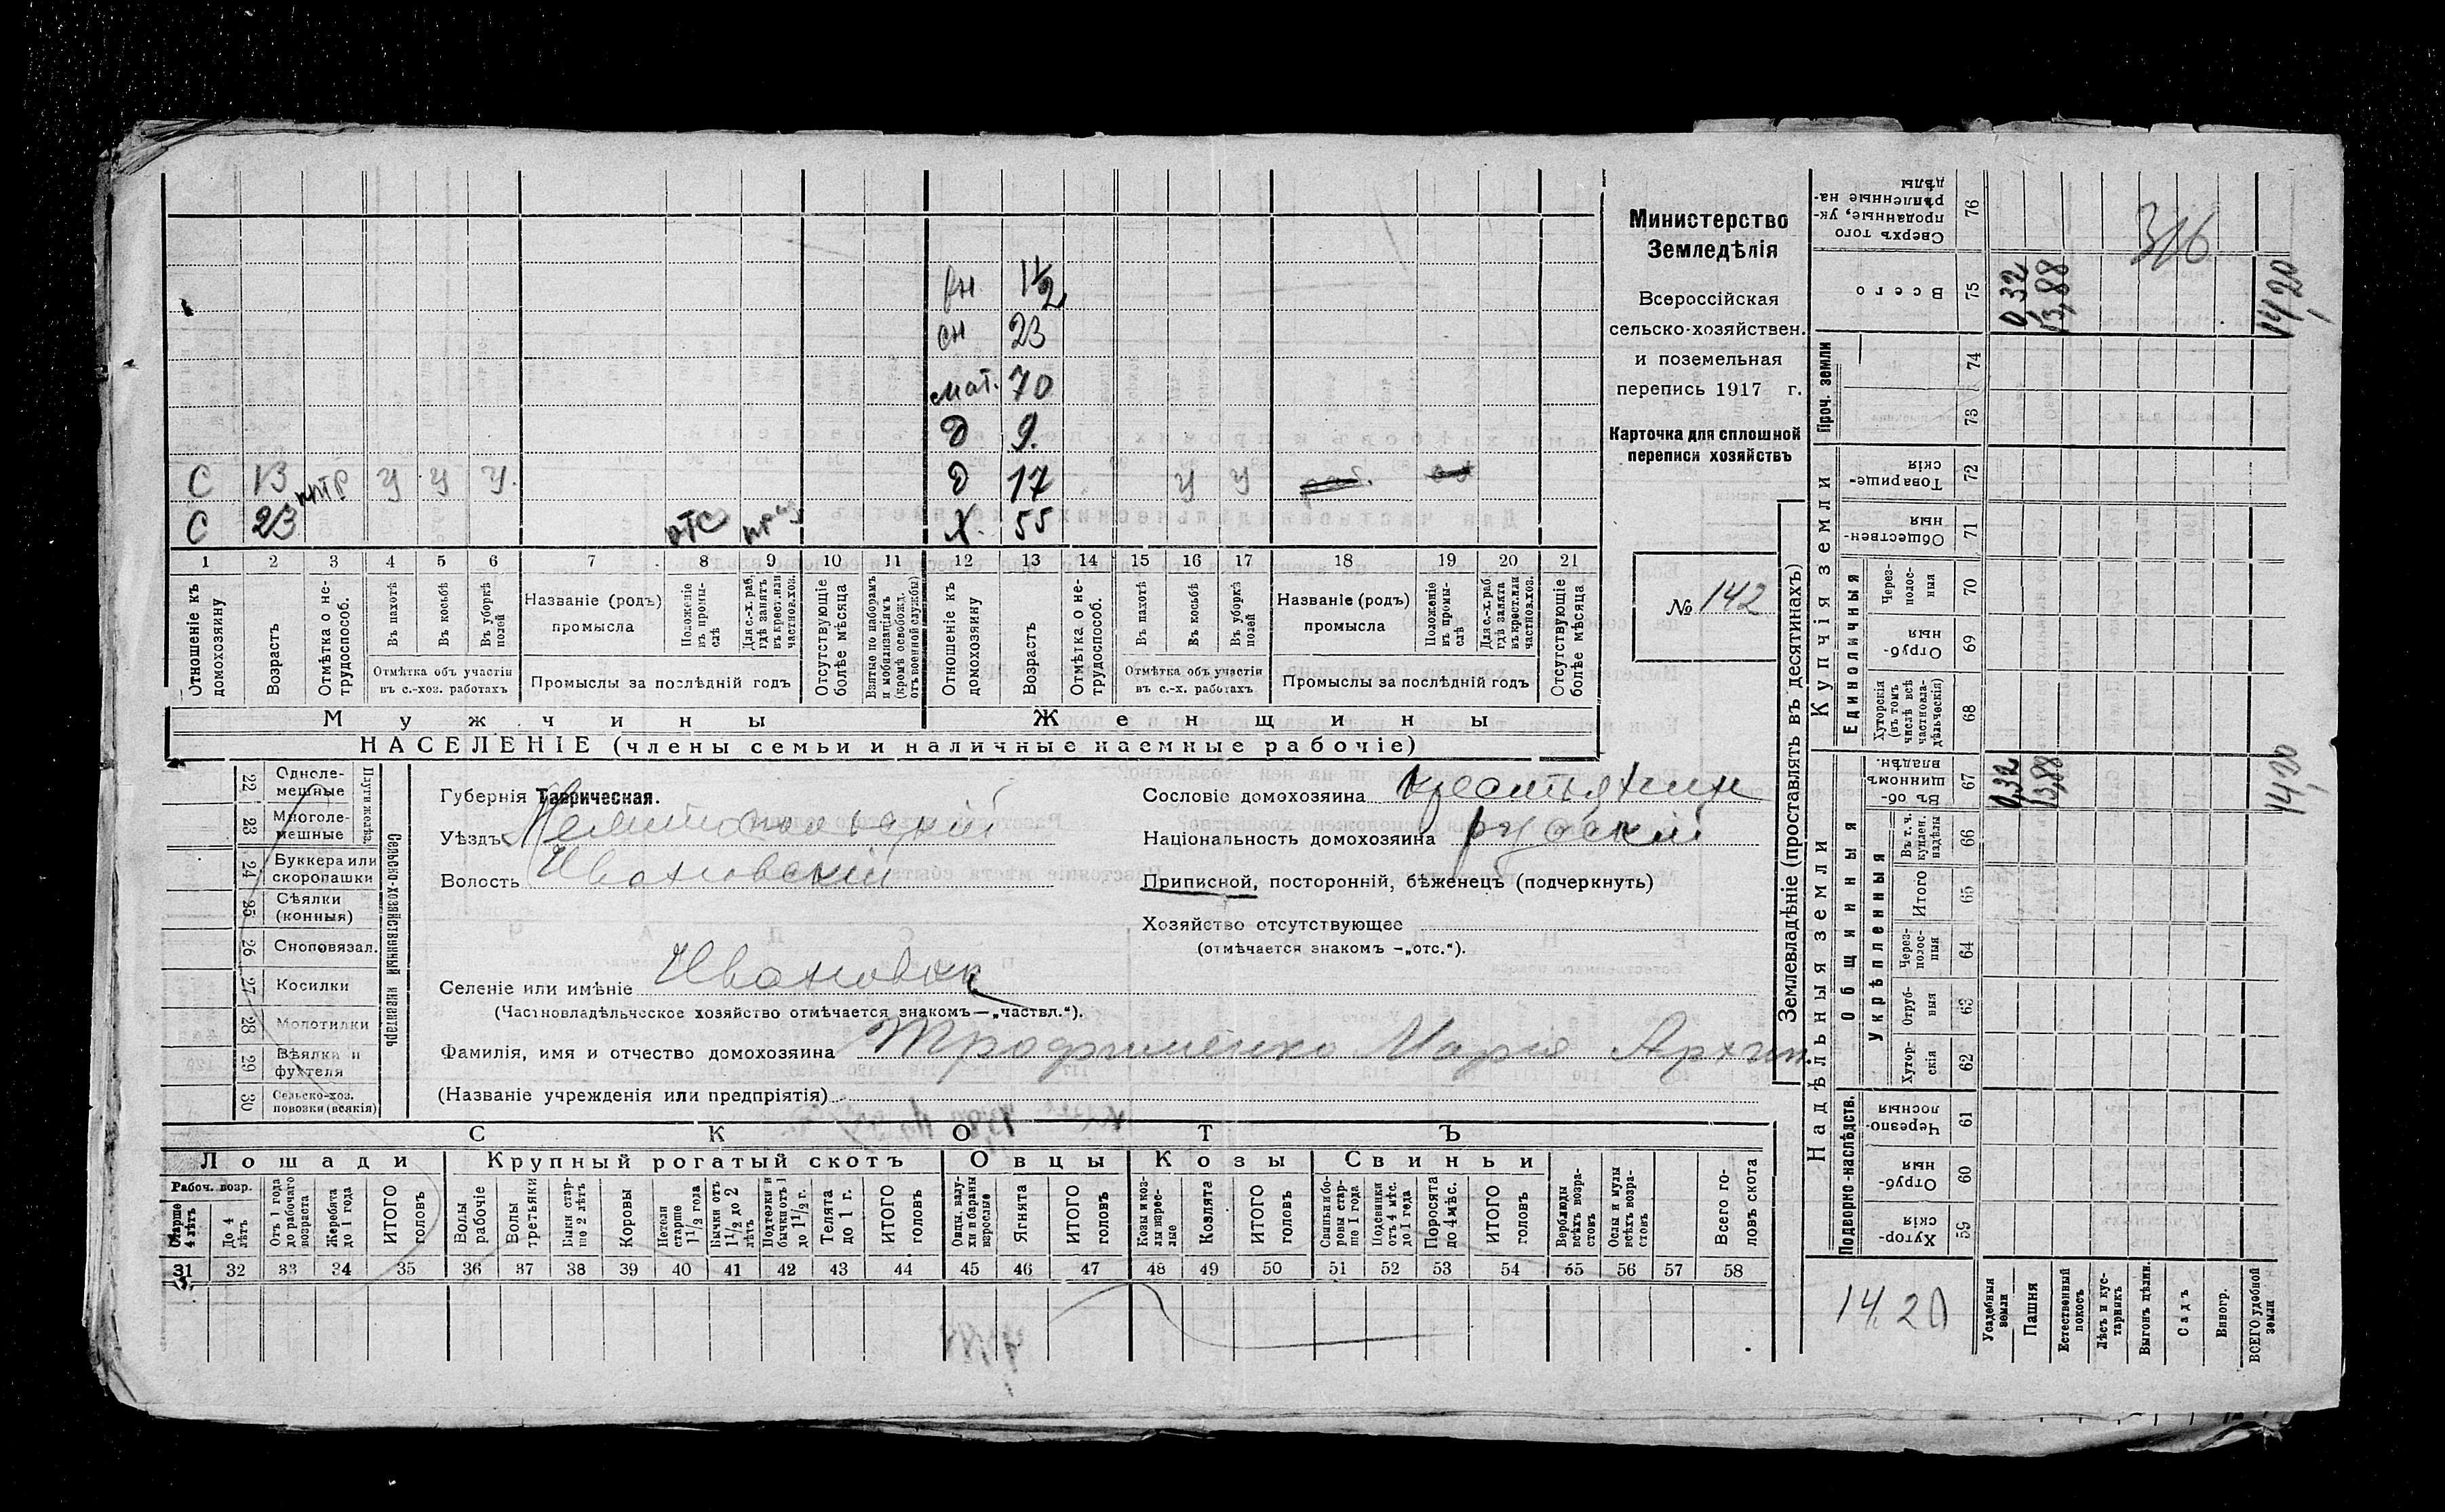 вн. 1 1/2
сн 23
мат. 70
д 9.
С 13 У У У. д 17 У У
С 23 отс Х. 55
1 2 3 4 5 6 7 8 9 10 11 12 13 14 15 16 17 18 19 20 21
Отношеніе къ домохозяину
Возрастъ
Отмѣтка о не-трудоспособ.
Въ пахотѣ
Въ косьбѣ
Въ уборкѣ полей
Отмѣтка объ участіи въ с.-хоз. работахъ
Названіе (родъ) промысла
Положеніе въ промы-слѣ
Для с.-х. раб. гдѣ занятъ въ крест. или частнов. хоз.
Промыслы за послѣдній годъ
Отсутствующіе болѣе мѣсяца
Взятые по наборамъ и мобилизаціямъ (кромѣ освобожд. отъ военной службы)
Отношеніе къ домохозяину
Возрастъ
Отмѣтка о не-трудоспособ.
Въ пахотѣ
Въ косьбѣ
Въ уборкѣ полей
Отмѣтка объ участіи въ с.-х. работахъ.
Названіе (родъ) промысла
Положеніе въ промы-слѣ
Для с.-х. раб. гдѣ занята въ крест. или частнов. хоз.
Промыслы за послѣдній годъ
Отсутствующіе болѣе мѣсяца
Мужчины Женщины
НАСЕЛЕНІЕ (члены семьи и наличные наемные рабочіе)
Министерство
Земледѣлія
Всероссійская
сельско-хозяйствен.
и поземельная
перепись 1917 г.
Карточка для сплошной
переписи хозяйствъ
№ 142
22 Одноле-мешные
23 Многоле-мешные
24 Буккера или скоропашки
25 Сѣялки (конныя)
26 Сноповязал.
27 Косилки
28 Молотилки
29 Вѣялки и фухтеля
30 Сельско-хоз. повозки (всякія)
Сельско-хозяйственный инвентарь
Губернія Таврическая.
Уѣздъ Мелитопольскій
Волость Ивановскій
Селеніе или имѣніе Ивановка
(Частновладѣльческое хозяйство отмѣчается знакомъ—„частвл.“).
Фамилія, имя и отчество домохозяина Трофименко Марія Архип.
(Названіе учрежденія или предпріятія)
Сословіе домохозяина крестьянин
Національность домохозяина русскій
Приписной, посторонній, бѣженецъ (подчеркнуть)
Хозяйство отсутствующее
(отмѣчается знакомъ -„отс.“).
СКОТЪ
Лошади Крупный рогатый скотъ Овцы Козы Свиньи
Рабоч. возр.
Старше 4 лѣтъ
До 4 лѣтъ
Отъ 1 года до рабочаго возраста
Жеребята до 1 года
ИТОГО головъ
Волы рабочіе
Волы третьяки
Быки стар-ше 2 лѣтъ
Коровы
Нетели старше 1 1/2 года
Бычки отъ 1 1/2 до 2 лѣтъ
Подтелки и бычки отъ 1 до 1 1/2 г.
Телята до 1 г.
ИТОГО головъ
Овцы, валу-хи и бараны взрослые
Ягнята
ИТОГО головъ
Козы и коз-лы взрос-лые
Козлята
ИТОГО головъ
Свиньи и бо-ровы стар-ше 1 года
Подсвинки отъ 4 мѣс. до 1 года
Поросята до 4 мѣс.
ИТОГО головъ
Верблюды всѣхъ возра-стовъ
Ослы и мулы всѣхъ возра-стовъ
Всего го-ловъ скота
31 32 33 34 35 36 37 38 39 40 41 42 43 44 45 46 47 48 49 50 51 52 53 54 55 56 57 58
Землевладѣніе (проставлять въ десятинахъ)
Надѣльныя земли
Купчія земли
Проч. земли
Сверхъ того проданные, ук-рѣпленные на-дѣлы 76 316
Всего 75 0,32 13,88 14,20
74
73
Товарище-скія 72
Обществен-ныя 71
Единоличныя
Через-полос-ныя 70
Отруб-ныя 69
Хуторскія (въ томъ числѣ всѣ частновла-дѣльческія) 68
Въ об-щинномъ владѣн. 67 0,32 13,88 14,20
Общинныя
Укрѣпленныя
Въ т. ч. куплен. надѣлы 66
Итого 65
Через-полос-ныя 64
Отруб-ныя 63
Хутор-скія 62
Подворно-наслѣдств.
Черезпо-лосныя 61
Отруб-ныя 60
Хутор-скія 59
14,20
Усадебныя земли
Пашня
Естественный покосъ
Лѣсъ и кус-тарникъ
Выгонъ цѣлин.
Садъ
Виногр.
ВСЕГО удобной земли